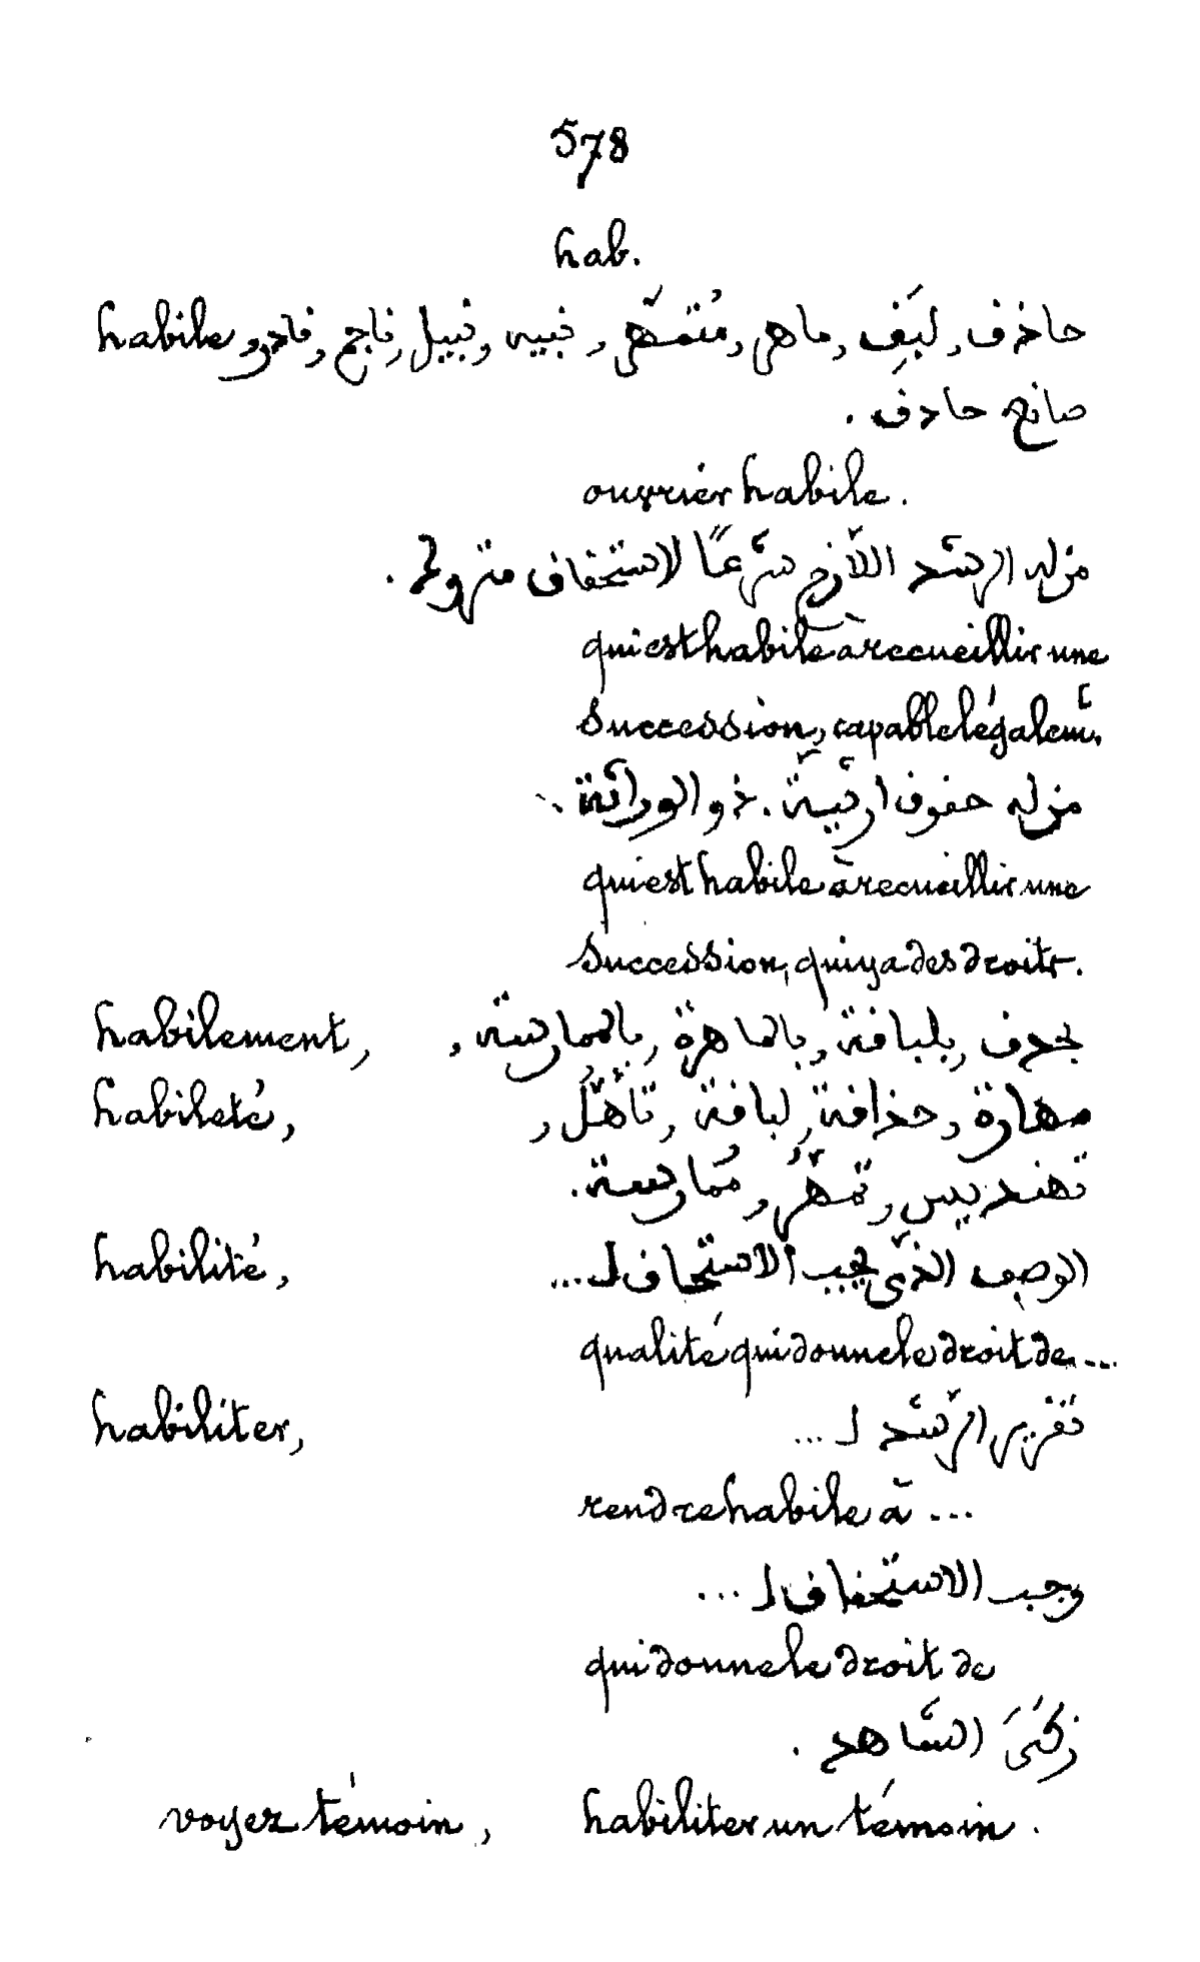 578
hab.
habile, حاذق, لبَق, ماهر, مُتمَهّر, نبيه, نبيل, ناجح, قادر
صانع حادق.
ouvrier habile.
من له الرشد اللازم شرعًا لاستحقاق متروك.
qui est habile à recueillir une
succession, capable légalemt.
من له حقوق ارثيّة. ذو الوراثة.
qui est habile à recueillir une
succession, qui y a des droits.
habilement, بحدق, بلباقة, بالماهرة, بالممارسة,
habileté, مهارة, حذاقة, لباقة, تأهُّل,
تهنديس, تمهُّر, مُمارسة.
habilité, الوصف الذي يجيب الاستحاق لـ...
qualité qui donne le droit de...
habiliter, تقرير الرشد لـ...
rendre habile à...
وجب الاستحقاق لـ...
qui donne le droit de
زكّى الشاهد.
voyez témoin, habiliter un témoin.